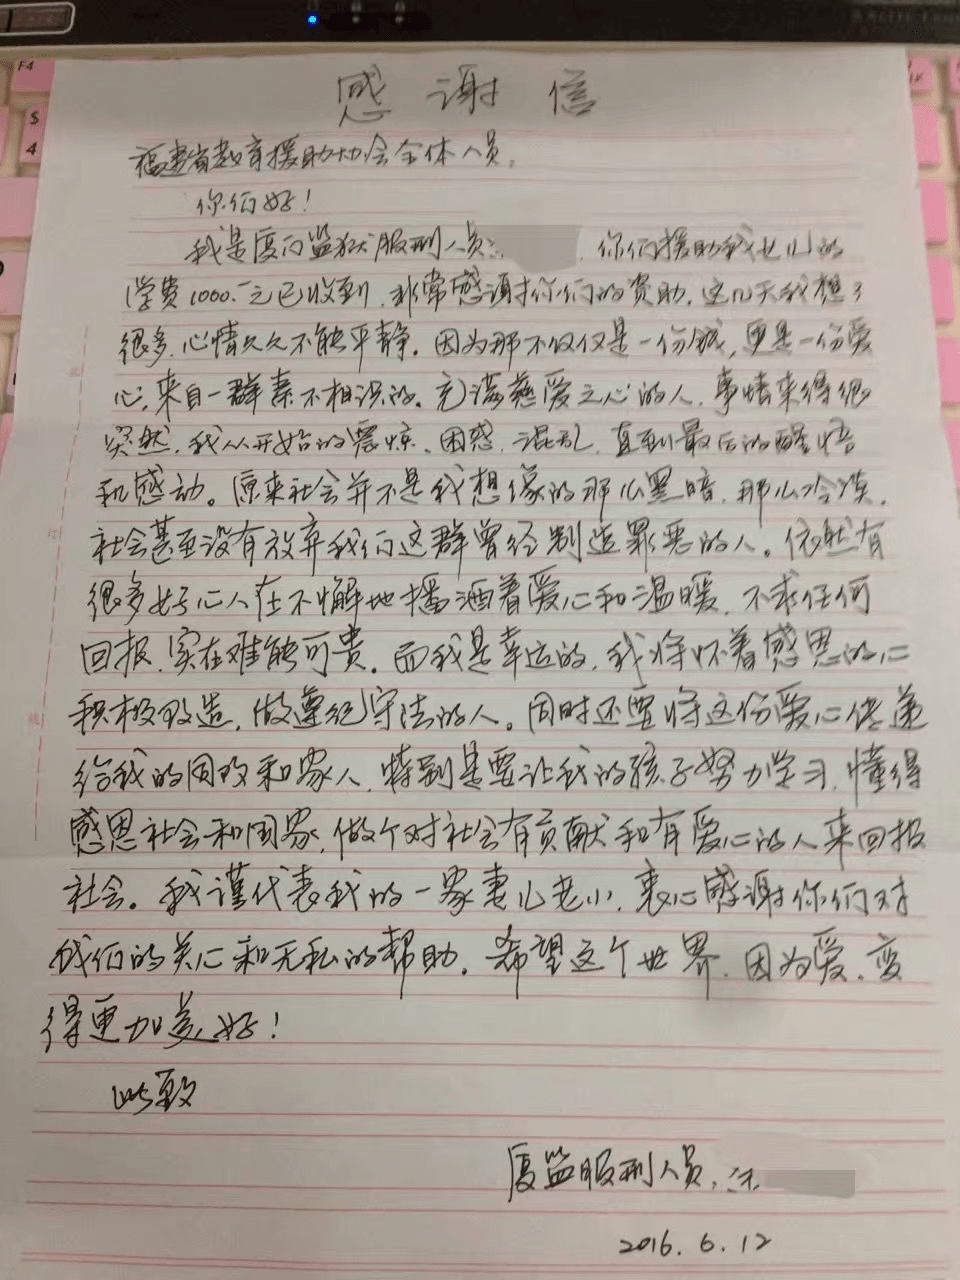 感谢信
福建省教育援助协会全体人员,
你们好!
我是厦门监狱服刑人员: , 你们援助我女儿的
学费1000.元已收到, 非常感谢你们的资助。这几天我想了
很多, 心情久久不能平静。因为那不仅仅是一份钱, 更是一份爱
心, 来自一群素不相识的、充满慈爱之心的人, 事情来得很
突然, 我从开始的震惊、困惑、混乱, 直到最后的醒悟
和感动。原来社会并不是我想像的那么黑暗, 那么冷淡,
社会甚至没有放弃我们这群曾经制造罪恶的人。依然有
很多好心人在不懈地播洒着爱心和温暖, 不求任何
回报, 实在难能可贵。而我是幸运的, 我将怀着感恩的心
积极改造, 做遵纪守法的人。同时还要将这份爱心传递
给我的同改和家人, 特别是要让我的孩子努力学习, 懂得
感恩社会和国家, 做个对社会有贡献和有爱心的人来回报
社会。我谨代表我的一家妻儿老小, 衷心感谢你们对
我们的关心和无私的帮助。希望这个世界, 因为爱, 变
得更加美好!
此致
厦监服刑人员:
2016.6.12
F4
$
4